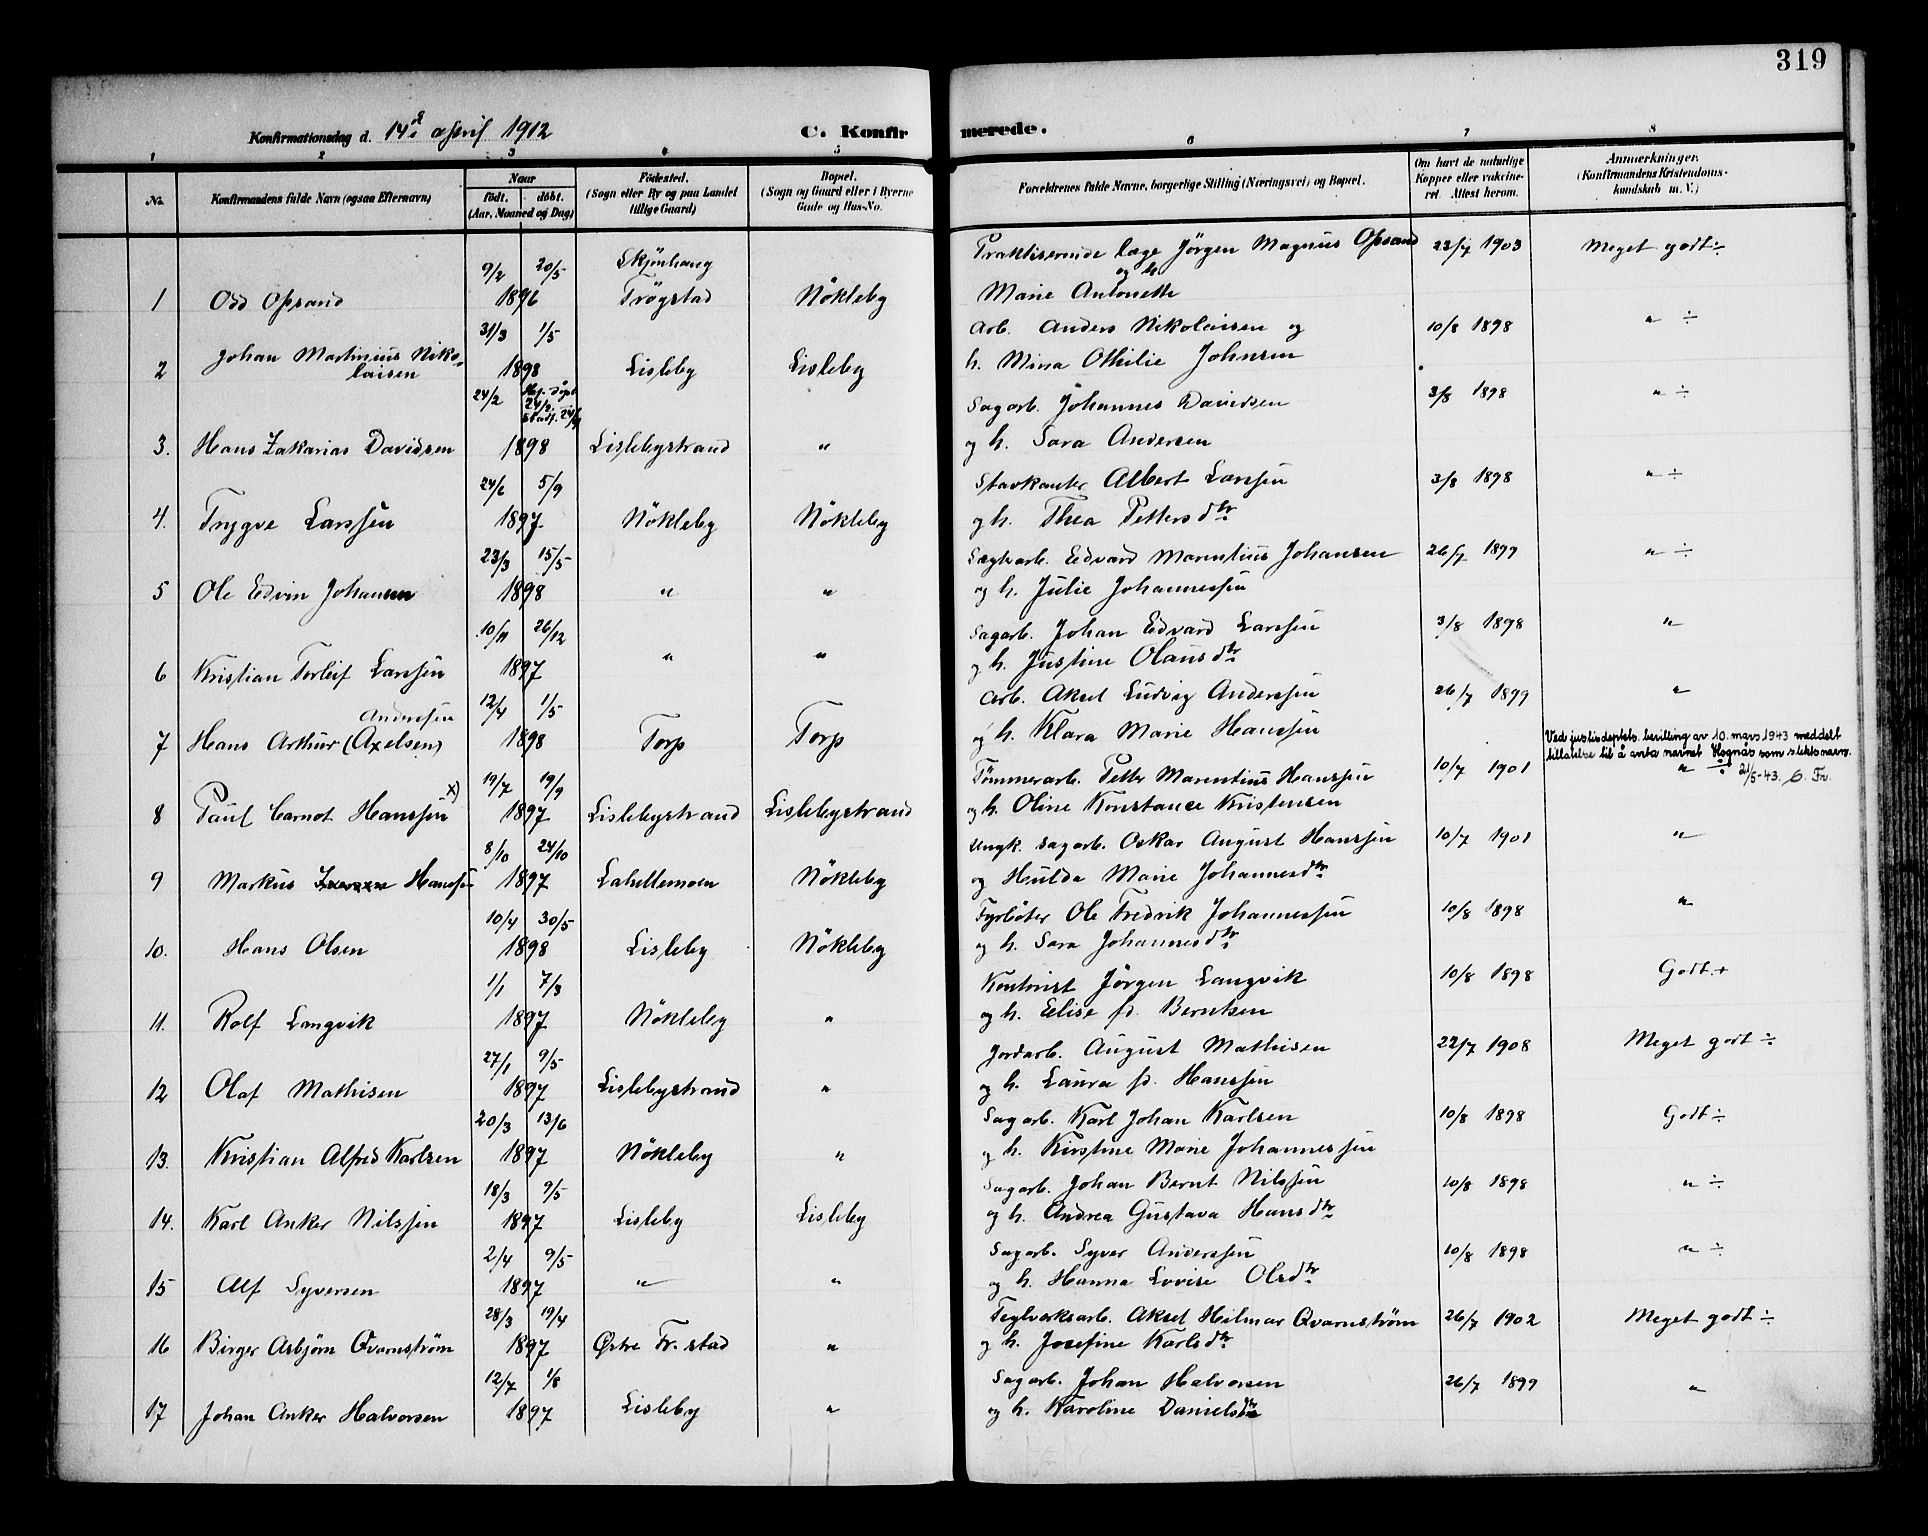 319
Konfirmationsdag d. 14de april 1912
C. Konfirmerede.
1 2 3 4 5 6 7 8
No.
Konfirmandens fulde Navn (ogsaa Efternavn)
Naar
födt. döbt.
(Aar, Maaned og Dag)
Födested.
(Sogn eller By og paa Landet
tillige Gaard)
Bopæl.
(Sogn og Gaard eller i Byerne
Gade og Hus-No.
Forældrenes fulde Navne, borgerlige Stilling (Næringsvei) og Bopæl.
Om havt de naturlige
Kopper eller vakcine-
ret. Attest herom.
Anmærkninger.
(Konfirmandens Kristendoms-
kundskab m. V.)
9/2 20/5 Skjönhaug Praktiserende læge Jörgen Magnus Opsand 23/7 1903 Meget godt ÷
og h.
1 Odd Opsand 1896 Trögstad Nökleby Marie Antonette
31/3 1/5 Arb. Anders Nikolaisen og 10/8 1898 " ÷
2 Johan Martinius Niko-
laisen 1898 Lisleby Lisleby h. Mina Othilie Johnsen
24/2 Hj. döpt 24/2 stadf. Sagarb. Johannes Davidsen 3/8 1898 " ÷
3. Hans Zakarias Davidsen 1898 Lislebystrand " og h. Sara Andersen
24/6 5/9 Stavkanter Albert Larssen 3/8 1898 " ÷
4. Trygve Larssen 1897 Nökleby Nökleby og h. Thea Pettersdtr
23/3 15/5 Teglv.arb. Edvard Marentius Johansen 26/7 1899 " ÷
5 Ole Edvin Johansen 1898 " " og h. Julie Johannessen
10/11 26/12 Sagarb. Johan Edvard Larssen 3/8 1898 "
6 Kristian Torleif Larssen 1897 " " og h. Justine Olausdtr
12/4 1/5 Arb. Aksel Ludvig Anderssen 26/7 1899 "
Anderssen
7 Hans Arthur (Axelsen) 1898 Torp Torp og h. Klara Marie Hanssen
Ved justisdeptets. bevilling av 10. mars 1943 meddelt
tillatelse til å anta navnet Hognås som slektsnavn.
21/5-43. G. Fr.
19/7 19/9 Tömmerarb. Petter Marentius Hanssen 10/7 1901 " ÷
8 Paul Carnot Hanssen x) 1897 Lislebystrand Lislebystrand og h. Oline Konstance Kristensen
8/10 24/10 Ungk. sagarb. Oskar August Hanssen 10/7 1901 "
9 Markus Hanssen 1897 Lahellemoen Nökleby og Hulda Marie Johannesdtr
10/4 30/5 Fyrböter Ole Fredrik Johannessen 10/8 1898 "
10. Hans Olsen 1898 Lisleby Nökleby og h. Sara Johannesdtr
1/1 7/3 Kontorist Jörgen Langvik 10/8 1898 Godt. +
11. Rolf Langvik 1897 Nökleby " og h. Elise fd. Berntsen
27/1 9/5 Jordarb. August Mathisen 22/7 1908 Meget godt ÷
12 Olaf Mathisen 1897 Lislebystrand " og h. Laura fd. Hanssen
20/3 13/6 Sagarb. Karl Johan Karlsen 10/8 1898 Godt ÷
13. Kristian Alfred Karlsen 1897 Nökleby " og h. Kirstine Marie Johannessen
18/3 9/5 Sagarb. Johan Bernt Nilssen 10/8 1898 " ÷
14. Karl Anker Nilssen 1897 Lisleby Lisleby og h. Andrea Gustava Hansdtr
2/4 9/5 Sagarb. Syver Anderssen 10/8 1898 " ÷
15 Alf Syversen 1897 " " og h. Hanna Lovise Olsdtr
28/3 19/4 Teglverksarb. Aksel Hilmar Qvarnström 26/7 1902 Meget godt ÷
16 Birger Asbjørn Qvarnstrøm 1897 Østre Fr.stad " og h. Josefine Karlsdtr
12/7 1/8 Sagarb. Johan Halvorsen 26/7 1899 "
17 Johan Anker Halvorsen 1897 Lisleby " og h. Karoline Danielsdtr